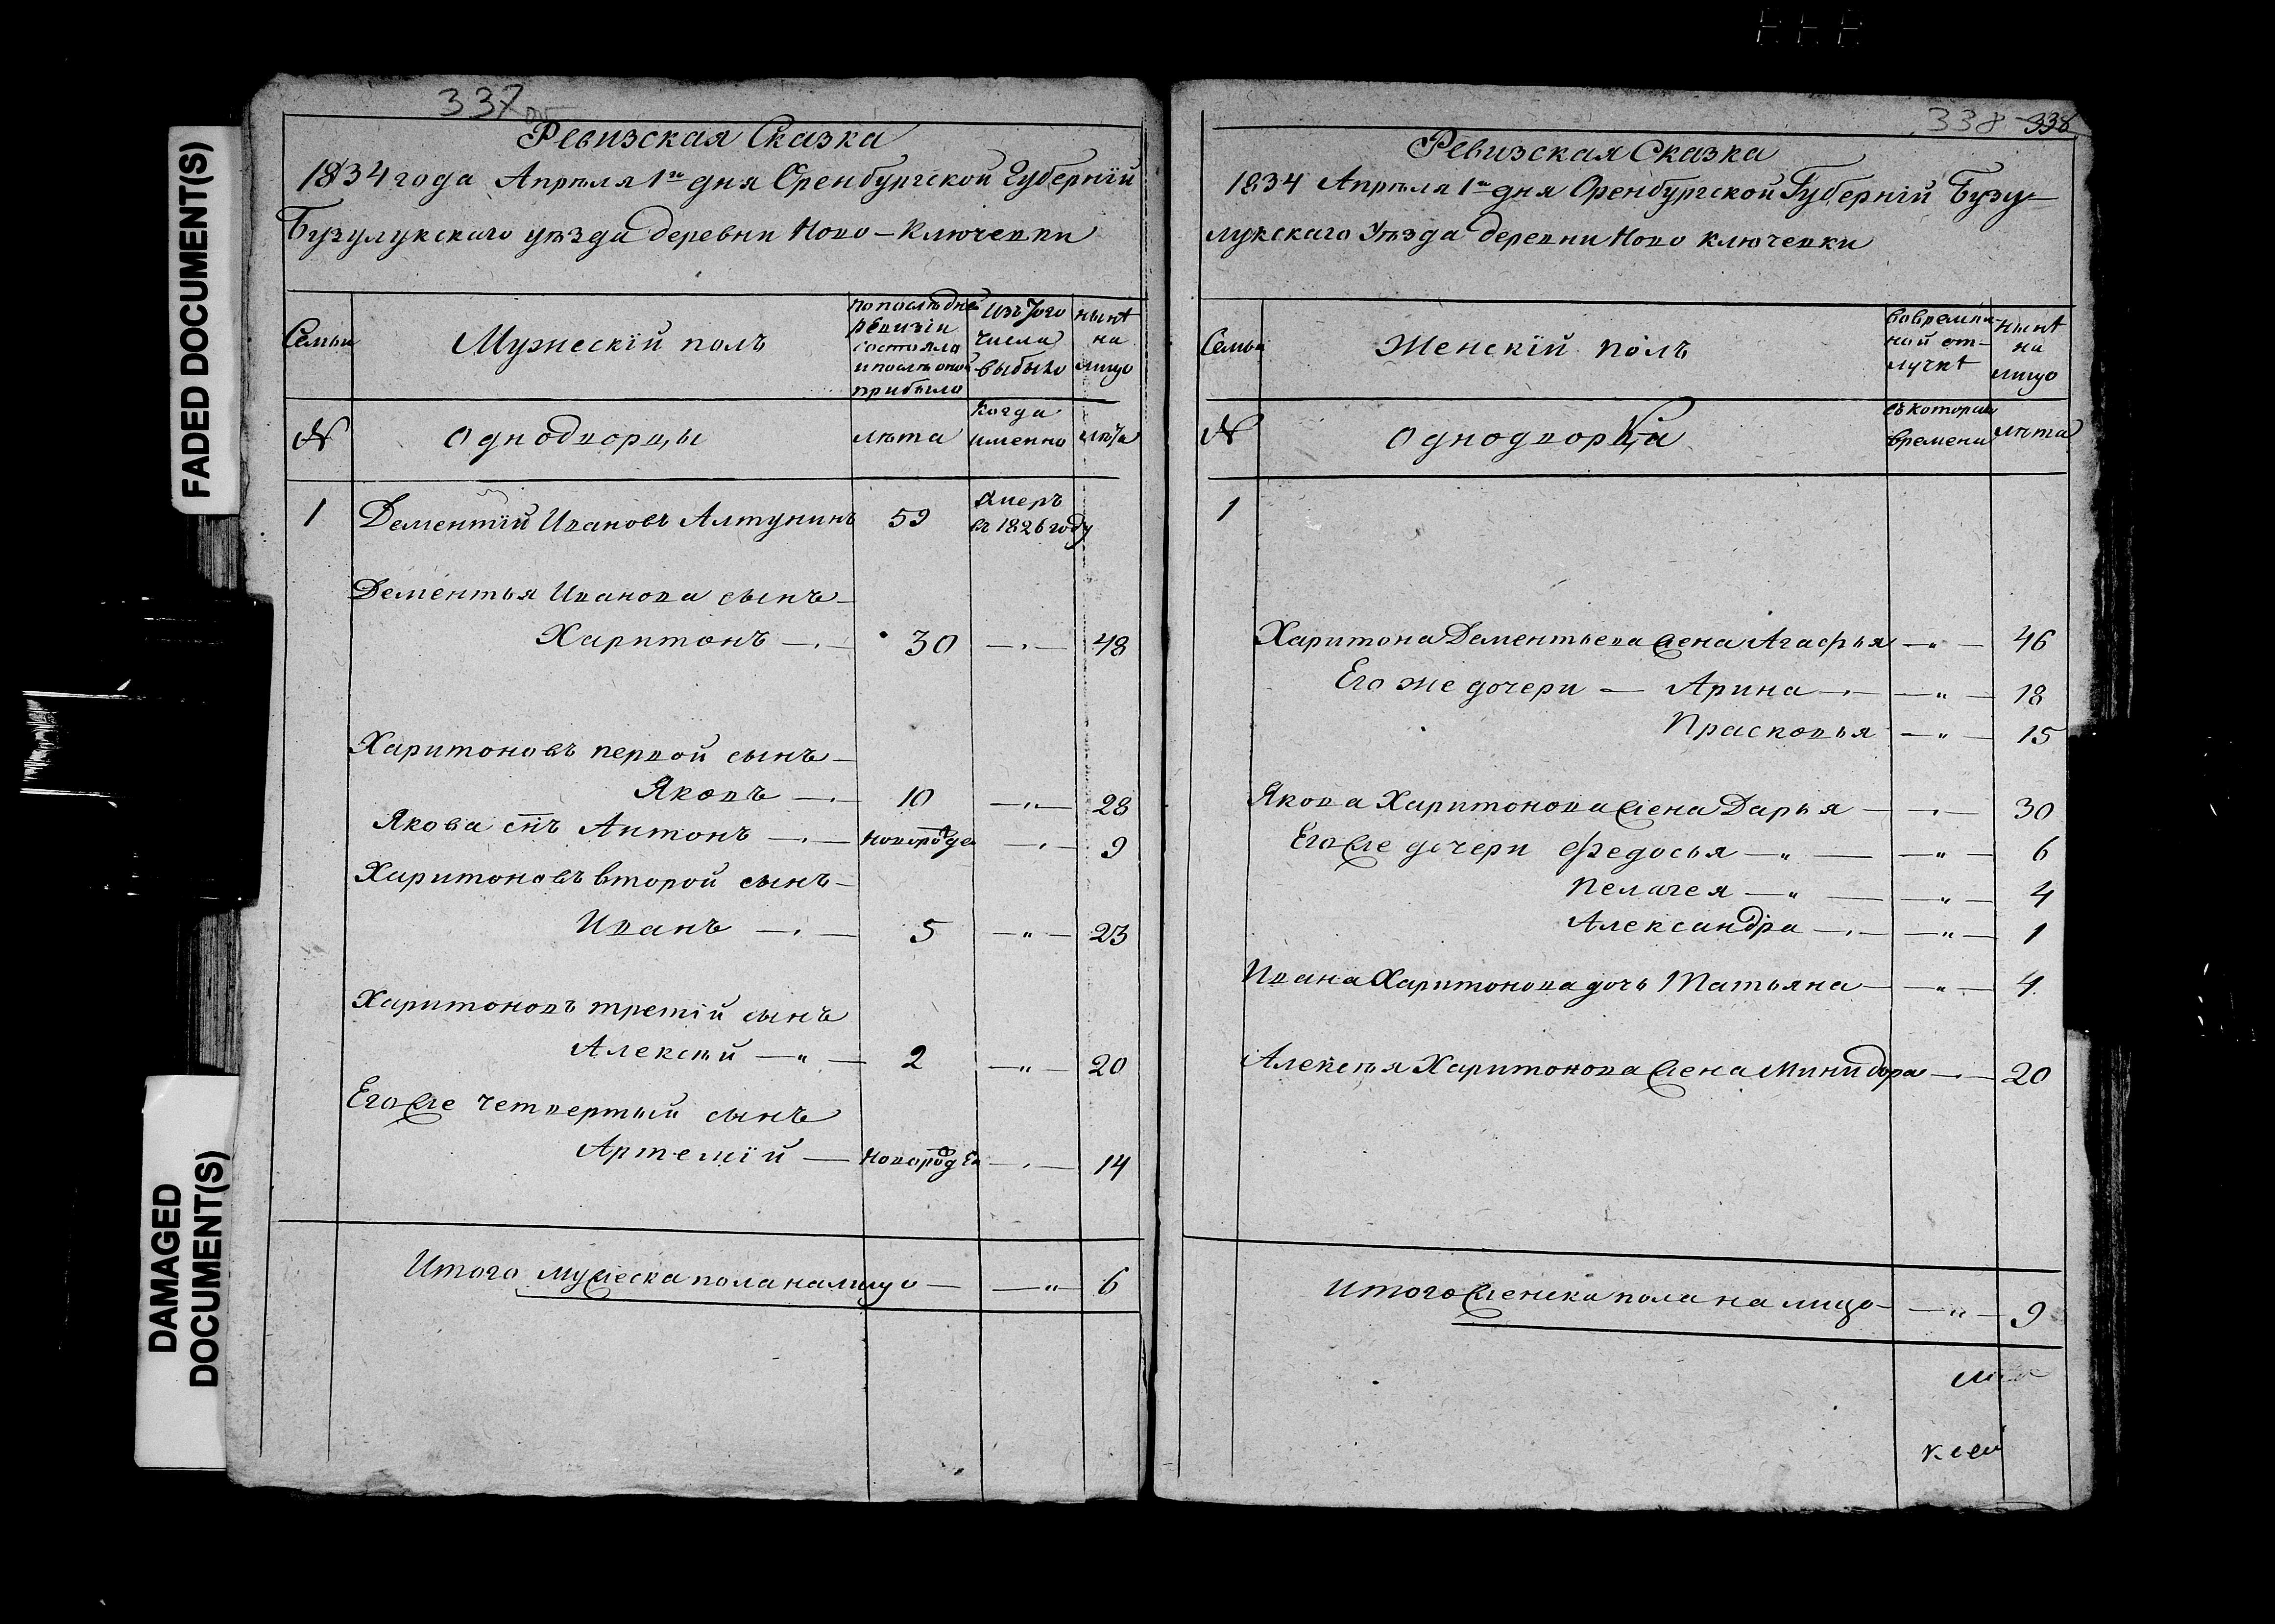 FADED DOCUMENT(S)
DAMAGED
DOCUMENT(S)
337
Ревизская Сказка
1834 года Апрѣля 1го дня Оренбургской Губернїй
Бузулукскаго уѣзда деревни Ново-Ключевки
Семьи
Мужескїй полъ
по последней ревизіи состояло и после оной прибыло
Изъ того числа выбыло
нынѣ на лицо
№
Однодворцы
лѣта
когда именно
лѣта
1 Дементїй Ивановъ Алтунинъ 59 Умеръ въ 1826 году
Дементья Иванова сынъ
Харитонъ 30 48
Харитоновъ первой сынъ
Яковъ 10 28
Якова снъ Антонъ новорожде 9
Харитоновъ второй сынъ
Иванъ 5 23
Харитоновъ третїй сынъ
Алексѣй 2 20
Его же четвертый сынъ
Артемїй новорожден 14
Итого мужеска пола налицо 6
338 338
Ревизская Сказка
1834 Апрѣля 1го дня Оренбургской Губернїй Бузу-
лукскаго Уѣзда деревни Ново ключевки
Семьи
Женскїй полъ
во времянной отлучкѣ
нынѣ на лицо
№
Однодворка
съ котораго времени
лѣта
1
Харитона Дементьева жена Агафья 46
Его же дочери Арина 18
Прасковья 15
Якова Харитонова жена Дарья 30
Его же дочери Федосья 6
Пелагея 4
Александра 1
Ивана Харитонова дочь Татьяна 4
Алексѣя Харитонова жена Минидора 20
Итого женска пола на лицо 9